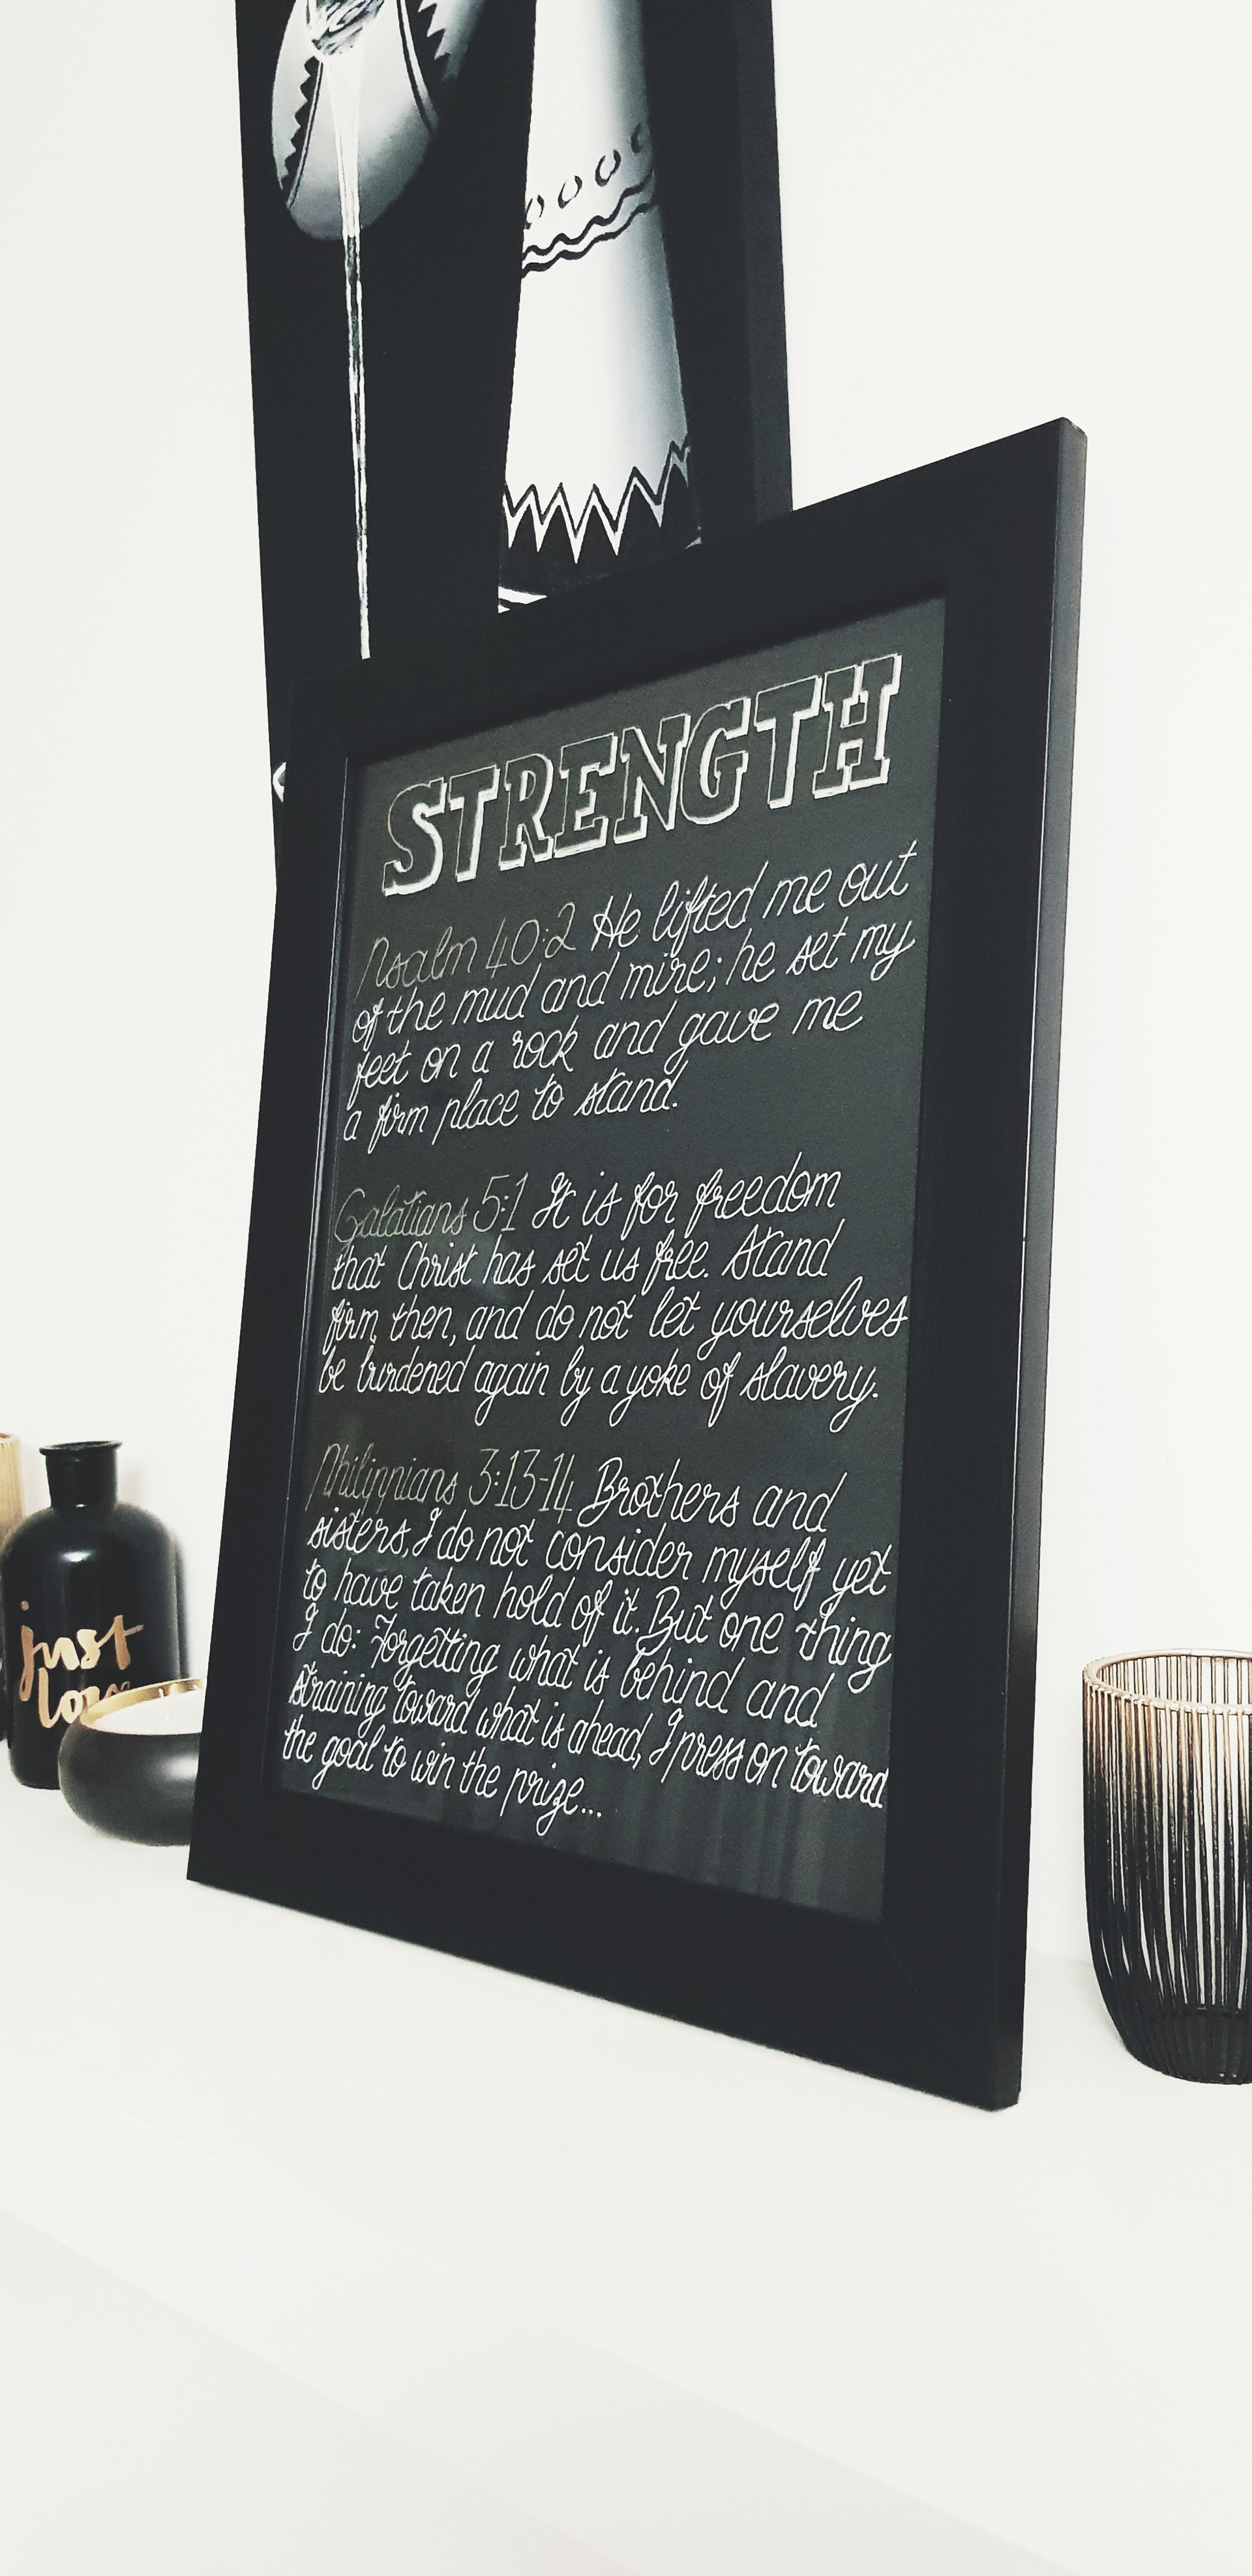 STRENGTH
Psalm 40:2 He lifted me out
of the mud and mire; he set my
feet on a rock and gave me
a firm place to stand.
Galatians 5:1 It is for freedom
that Christ has set us free. Stand
firm, then, and do not let yourselves
be burdened again by a yoke of slavery.
Philippians 3:13-14 Brothers and
sisters, I do not consider myself yet
to have taken hold of it. But one thing
I do: Forgetting what is behind and
straining toward what is ahead, I press on toward
the goal to win the prize...
just